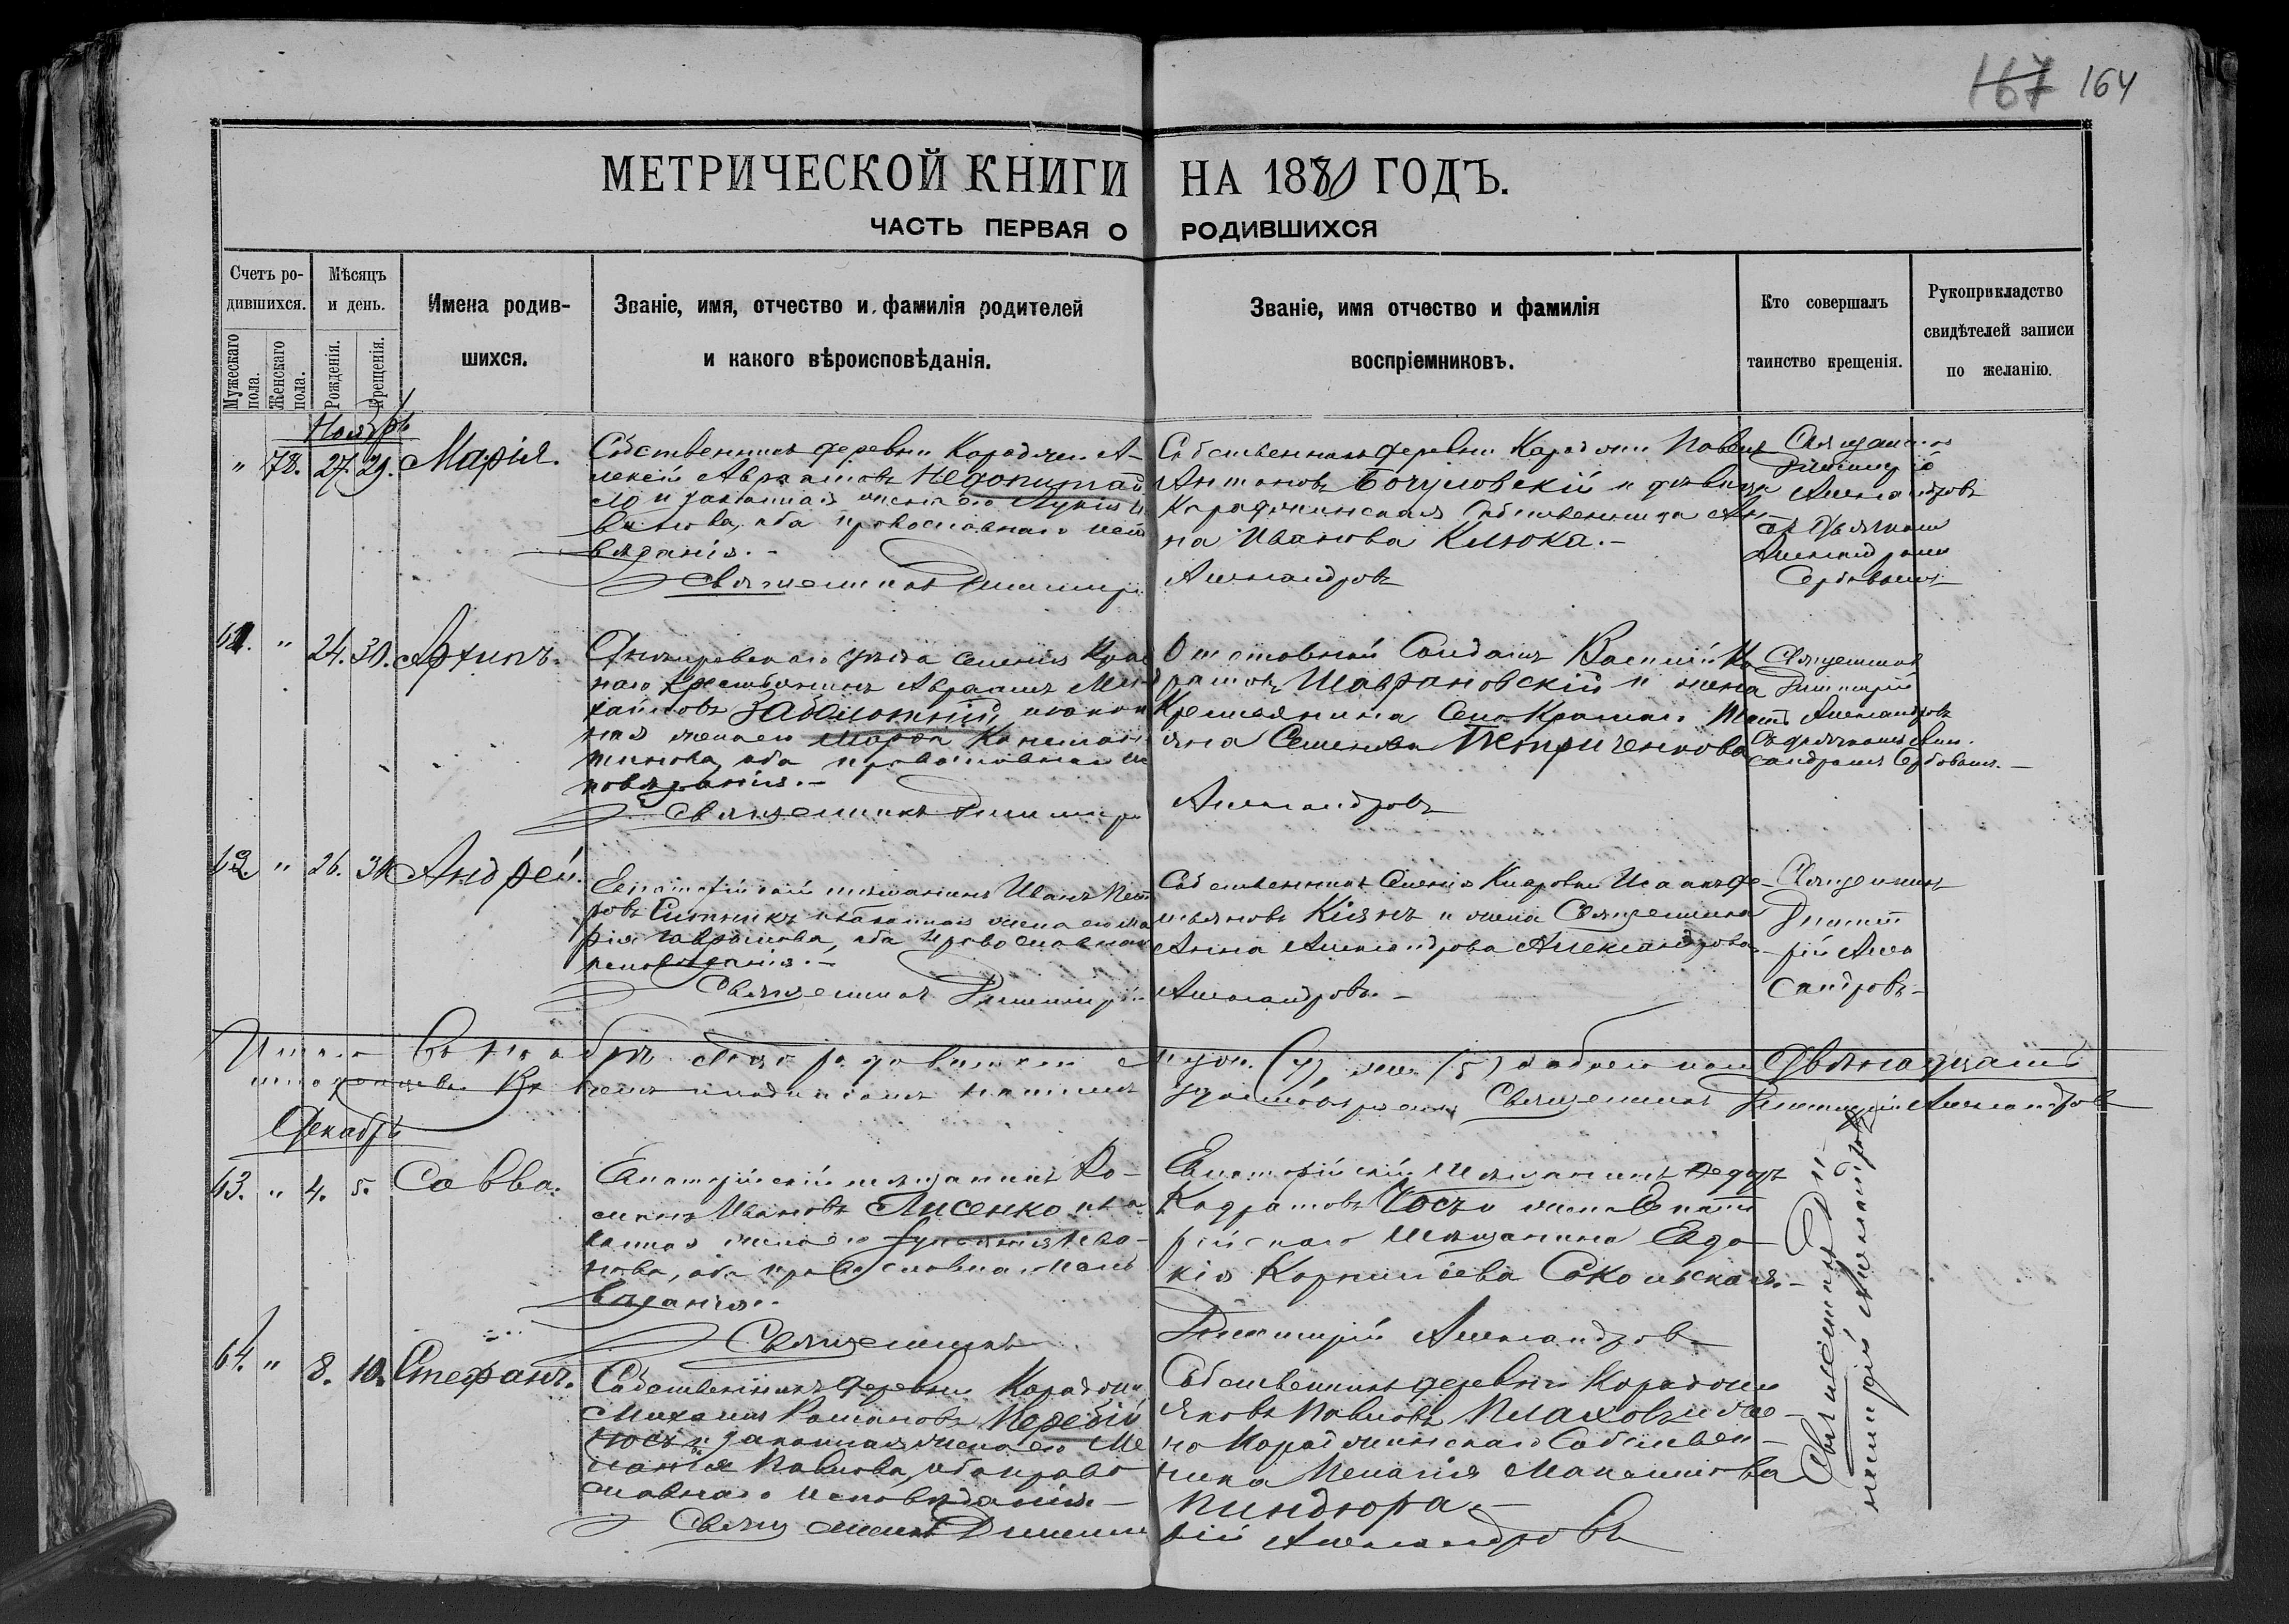 167 164
МЕТРИЧЕСКОЙ КНИГИ НА 1880 ГОДЪ.
ЧАСТЬ ПЕРВАЯ О РОДИВШИХСЯ
Счетъ ро-
дившихся.
Мужескаго пола.
Женскаго пола.
Мѣсяцъ
и день.
Рожденія.
Крещенія.
Имена родив-
шихся.
Званіе, имя, отчество и фамилія родителей
и какого вѣроисповѣданія.
Званіе, имя отчество и фамилія
воспріемниковъ.
Кто совершалъ
таинство крещенія.
Рукоприкладство
свидѣтелей записи
по желанію.
Ноябрь
" 78. 27. 29. Марія.
Собственникъ деревни Караджи А-
лексій Авраамовъ Недопитай
ло и законная жена его
православнаго
вѣданія.-
Священникъ Димитрій
Собственникъ деревни Караджи Павелъ
Антоновъ Бочуловскій и дѣвица
Караджинская Собственница Ан-
на Иванова Клюка.-
Александровъ
Священникъ
Димитрій
Александровъ
съ Дьячкомъ
Александромъ
Сербовымъ
61. " 24. 30. Архипъ.
Днѣпровскаго уѣзда селенія Крас
наго крестьянинъ Авраамъ Ми
хайловъ Заболотній и закон
ная жена его Марѳа Констан
тинова, оба православнаго ис
повѣданія.-
Священникъ Димитрій
Отставной Солдатъ Василій
Шаврановскій и жена
Крестьянина Села Краснаго Тать
яна Семенова Петриченкова
Александровъ
Священникъ
Димитрій
Александровъ
съ дьячкомъ Алек-
сандромъ Сербовымъ.-
62. " 26. 30. Андрей.
Евпаторійскій мѣщанинъ Иванъ Пет
ровъ и законная жена его Ма
рія Гаврилова, оба православнаго
исповѣданія.-
Священникъ Димитрій
Собственникъ Селенія Кунаровки Исаакъ Де-
мьяновъ Кіянъ и жена Священника
Анна Александрова Александрова.
Александровъ.-
Священникъ
Димит
рій Алек
сандровъ-
Итого въ ноябрѣ м-цѣ родившихся муж. (7), жен. (5) а обоего пола двѣнадцать
Священникъ Димитрій Александровъ
Декабрь
63. " 4. 5. Савва.
Евпаторійскій мѣщанинъ Ро-
манъ Ивановъ Лисенко и за
конная жена его Ива-
нова, оба православнаго испо
вѣданія.-
Священникъ
Евпаторійскій Мѣщанинъ Ѳедоръ
Кодратовъ Чосъ и жена Евпато
рійскаго Мѣщанина Евдо
кія Корнильева Сокольская.-
Димитрій Александровъ
Священникъ Ди-
митрій Александровъ
64. " 8. 10. Стефанъ.
Собственникъ деревни Караджи
Михаилъ Романовъ Перебій
носъ и законная жена его Ме
ланія Павлова, оба право
славнаго Исповѣданія.-
Священникъ Димит
Собственникъ деревни Караджи
Яковъ Павловъ Плаховъ и же-
на Караджинскаго Собствен-
ника Пелагія Максимова
Пиндюра.-
рій Александровъ